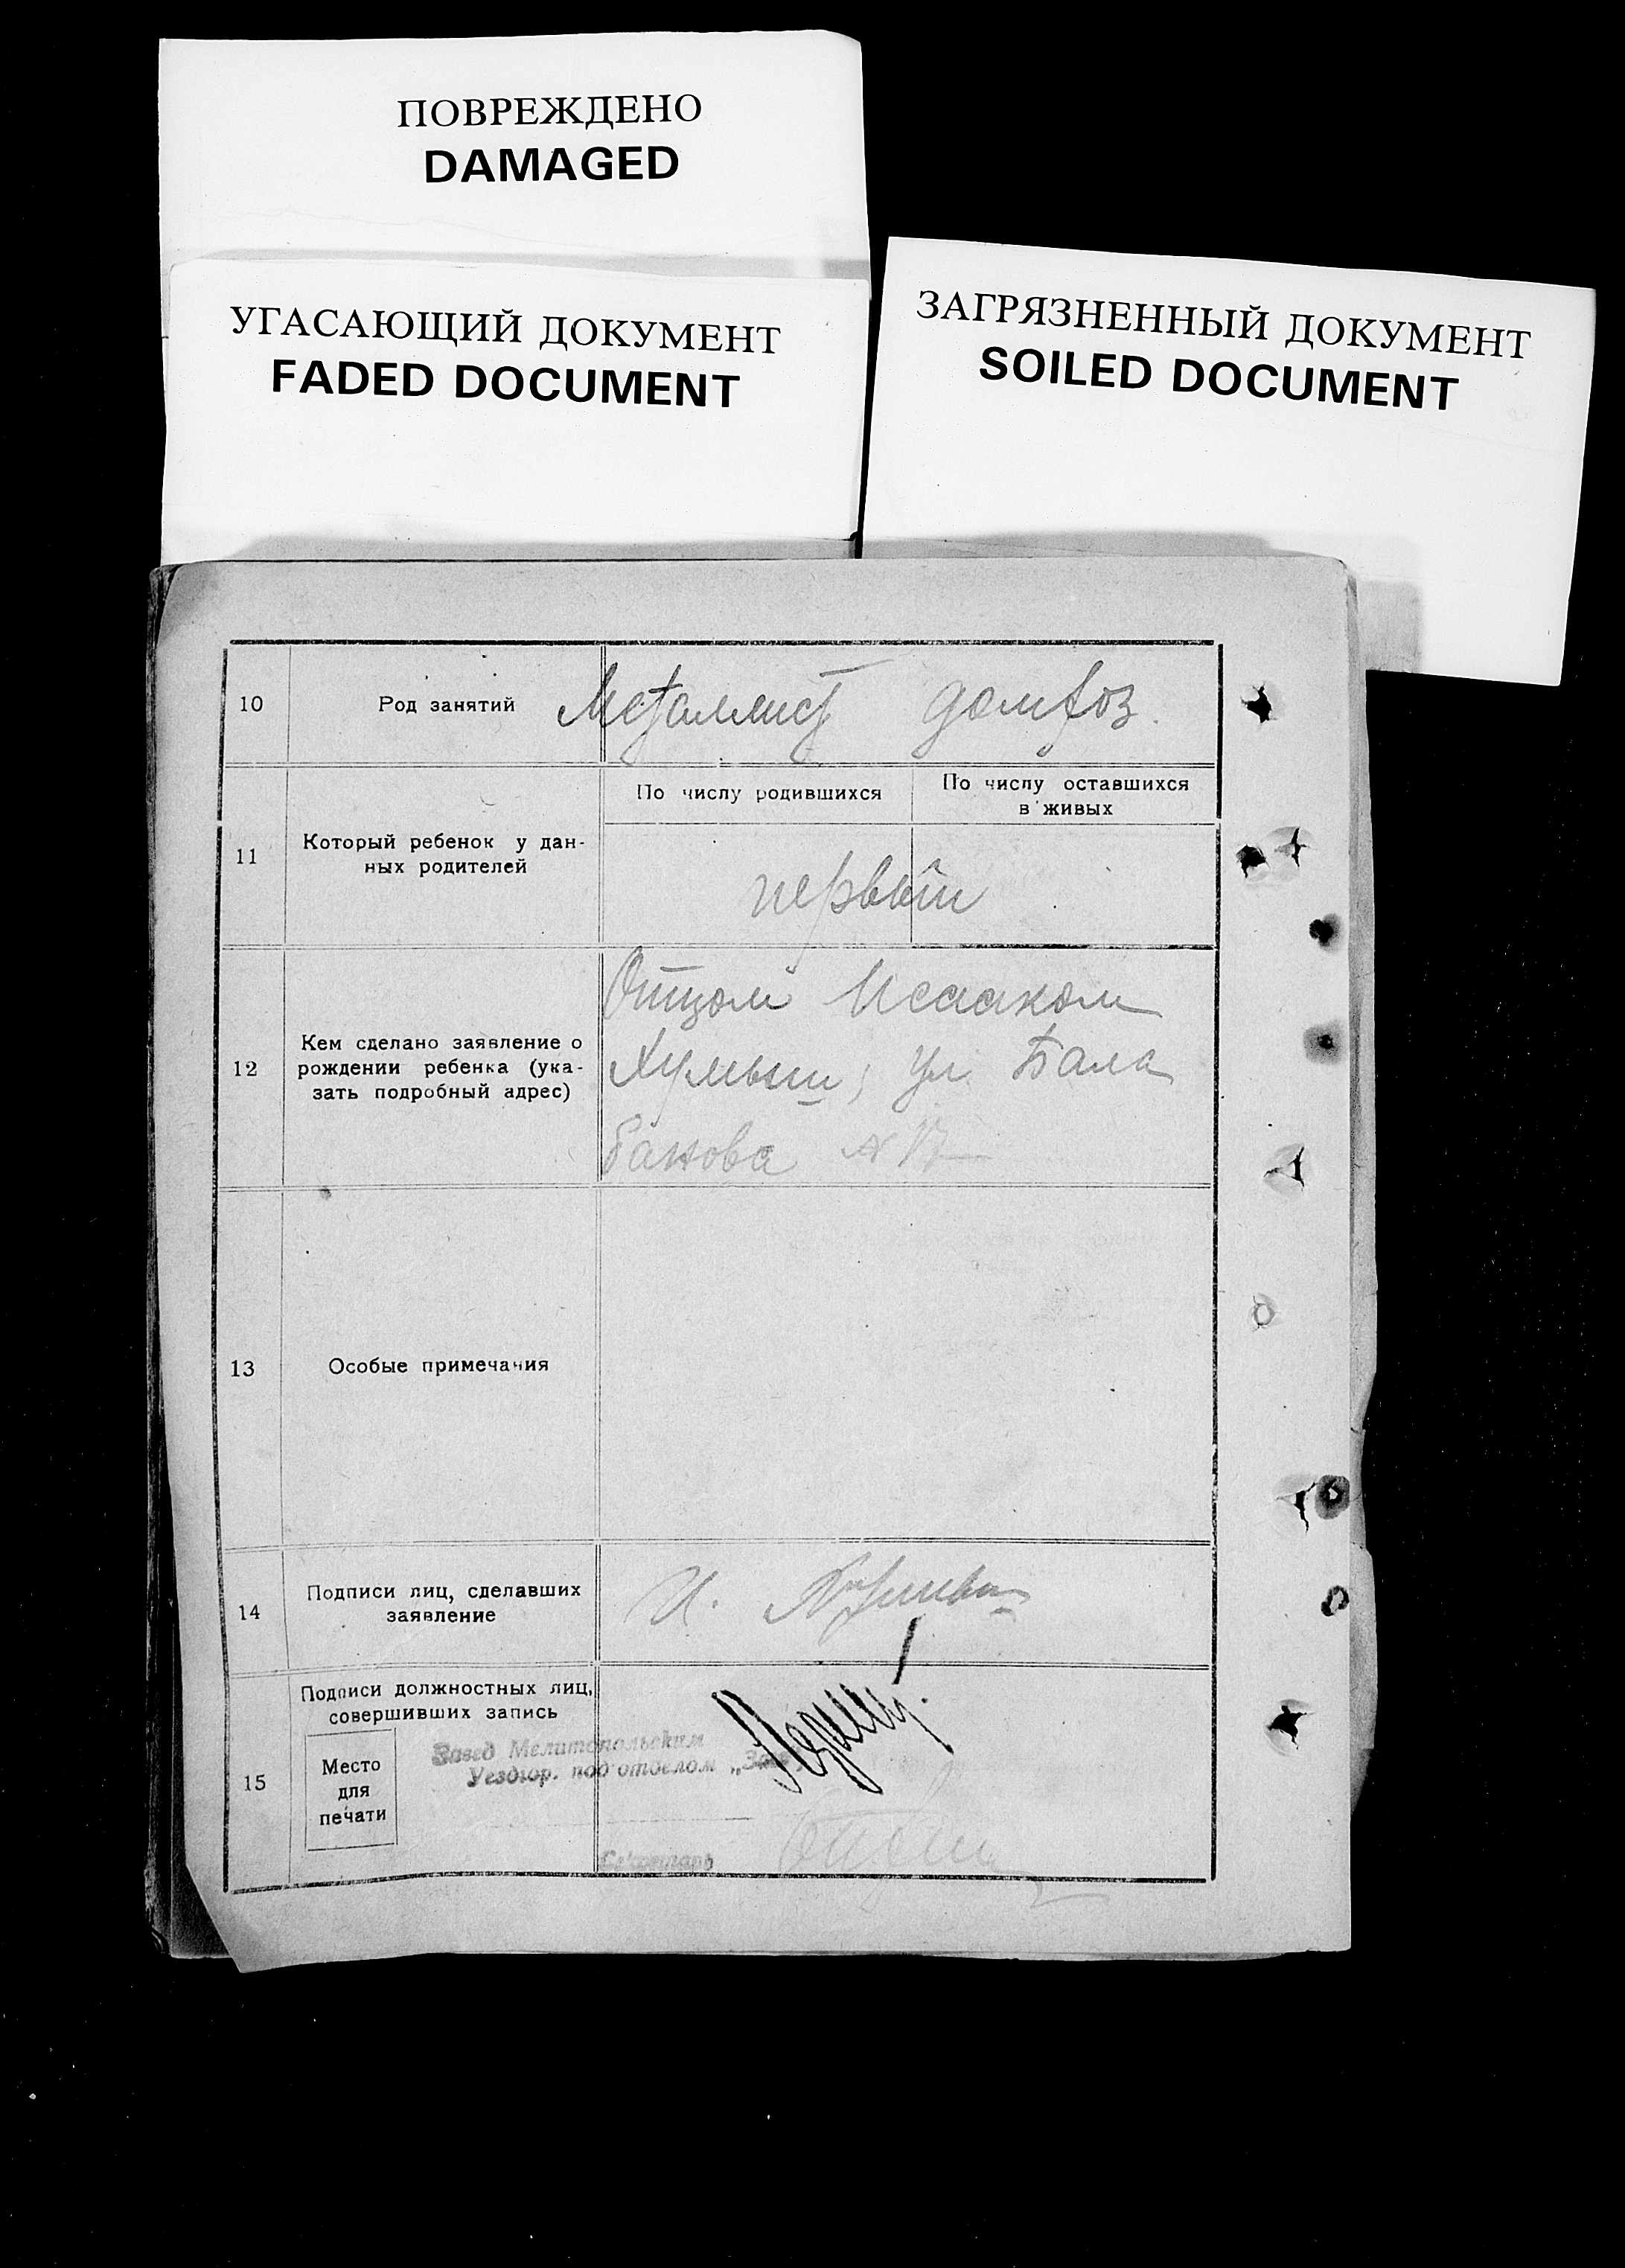 ПОВРЕЖДЕНО
DAMAGED
УГАСАЮЩИЙ ДОКУМЕНТ
FADED DOCUMENT
ЗАГРЯЗНЕННЫЙ ДОКУМЕНТ
SOILED DOCUMENT
10
Род занятий
Металлист домхоз.
11
Который ребенок у дан-
ных родителей
По числу родившихся
По числу оставшихся
в живых
первый
12
Кем сделано заявление о
рождении ребенка (ука-
зать подробный адрес)
Отцом Исааком
ул. Бала
банова N 17
13
Особые примечания
14
Подписи лиц, сделавших
заявление
И.
15
Подписи должностных лиц,
совершивших запись
Место
для
печати
Завед Мелитопольским
Уездгор. под'отделом „Загс"
Секретарь